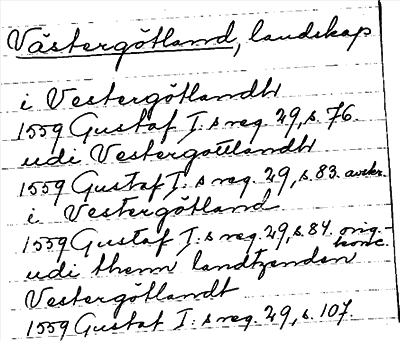 Västergötland, landskap
i Vestergötlandh
1559 Gustaf I:s reg. 29, s. 76.
udi Vestergottlandh
1559 Gustaf I:s reg. 29, s. 83. avskr.
i Vestergötland
1559 Gustaf I:s reg. 29, s. 84. orig.-
konc.
udi thenn landtzenden
Vestergötlandt
1559 Gustaf I:s reg. 29, s. 107.